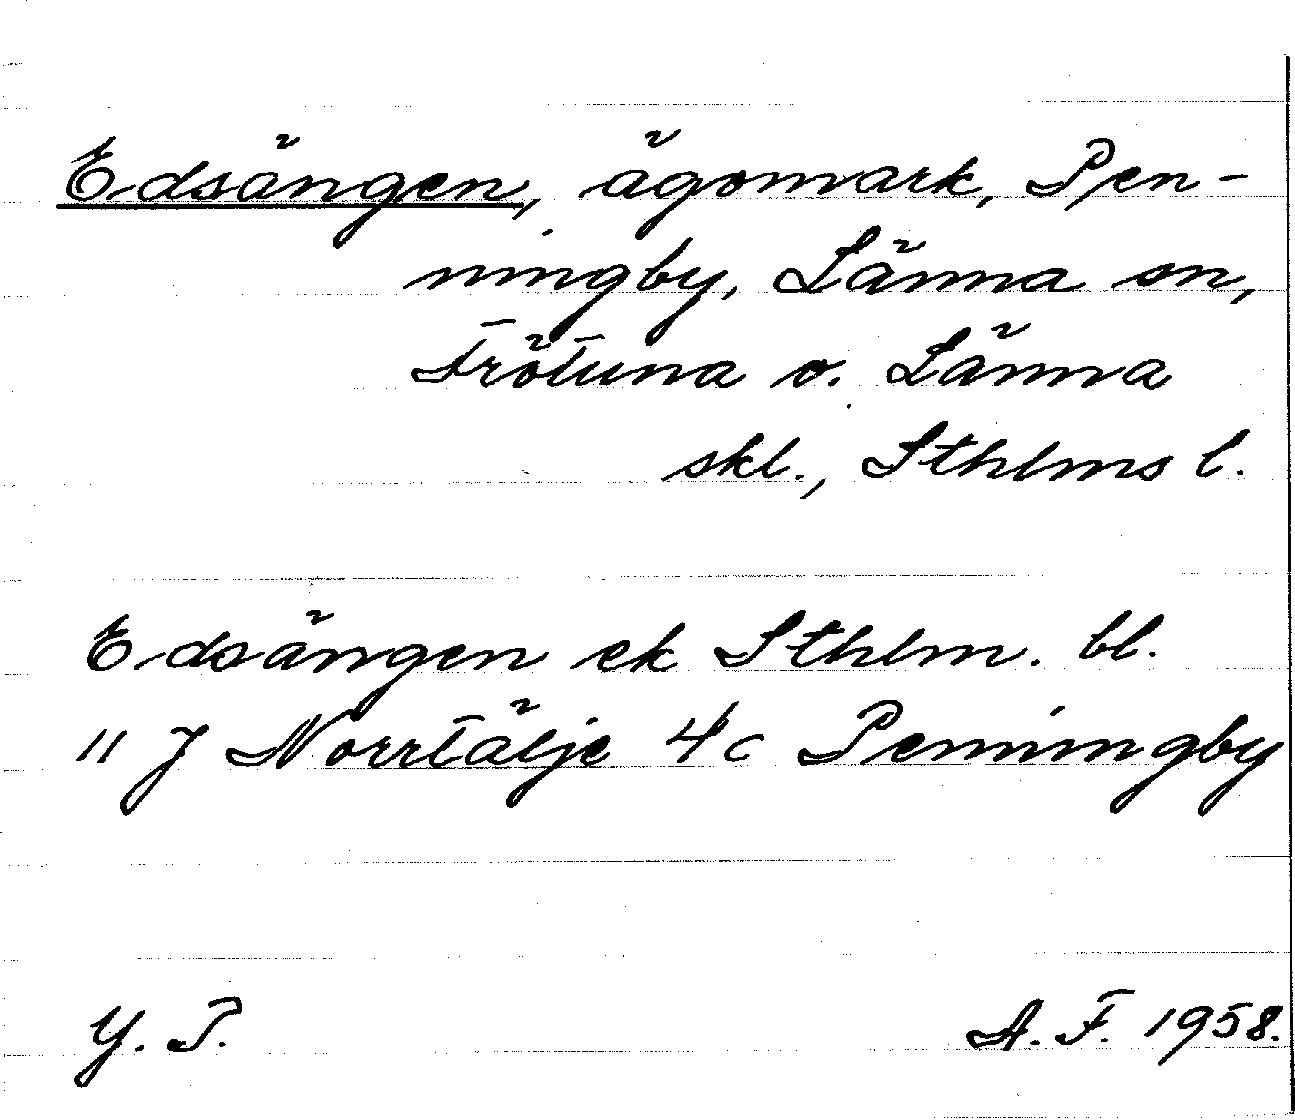 Edsängen, ägomark, Pen-
ningby, Länna sn,
Frötuna o. Länna
skl., Sthlms l.
Edsängen ek Sthlm. bl.
11 J Norrtälje 4c Penningby
Y. P. A. F. 1958.